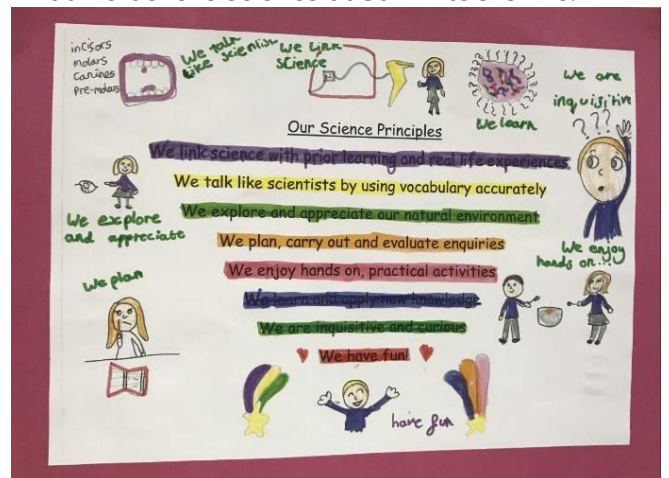 incisors
molars
canines
pre-molars
We talk
like scientist
We link
science
We learn
We are
inquisitive
? ? ?
Our Science Principles
We link science with prior learning and real life experiences
We talk like scientists by using vocabulary accurately
We explore and appreciate our natural environment
We plan, carry out and evaluate enquiries
We enjoy hands on, practical activities
We learn and apply new knowledge
We are inquisitive and curious
We have fun!
We explore
and appreciate
We plan
We enjoy
hands on...
have fun